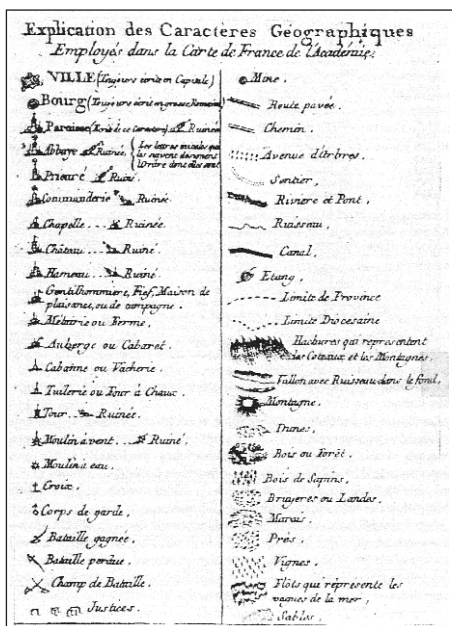 Explication des Caracteres Géographiques
Employés dans la Carte de France de l'Académie
VILLE (Toujours écrite en Capitale)
Bourg (Toujours écrit en grosse Romaine)
Paroisse (Ecrit de ce Caractere) Ruinée
Abbaye Ruinée. { Les lettres initiales qui les suivent designent l'Ordre dont elles sont
Prieuré Ruiné.
Commanderie Ruinée.
Chapelle.... Ruinée.
Château... Ruiné.
Hameau... Ruiné.
Gentilhommiere, Fief, Maison de
plaisance, ou de campagne.
Métairie ou Ferme.
Auberge ou Cabaret.
Cabanne ou Vacherie.
Tuilerie ou Four à Chaux.
Tour. Ruinée.
Moulin à vent... Ruiné.
Moulin à eau.
Croix.
Corps de garde.
Bataille gagnée.
Bataille perdue.
Champ de Bataille.
Justices.
Mine.
Route pavée.
Chemin.
Avenue d'Arbres.
Sentier.
Riviere et Pont.
Ruisseau.
Canal.
Etang.
Limite de Province
Limite Diocesaine
Hachures qui representent
les Coteaux et les Montagnes.
Vallon avec Ruisseau dans le fond.
Montagne.
Dunes.
Bois ou Forêt.
Bois de Sapins.
Bruyeres ou Landes.
Marais.
Prés.
Vignes.
Flots qui represente les
vagues de la mer,
Sables.